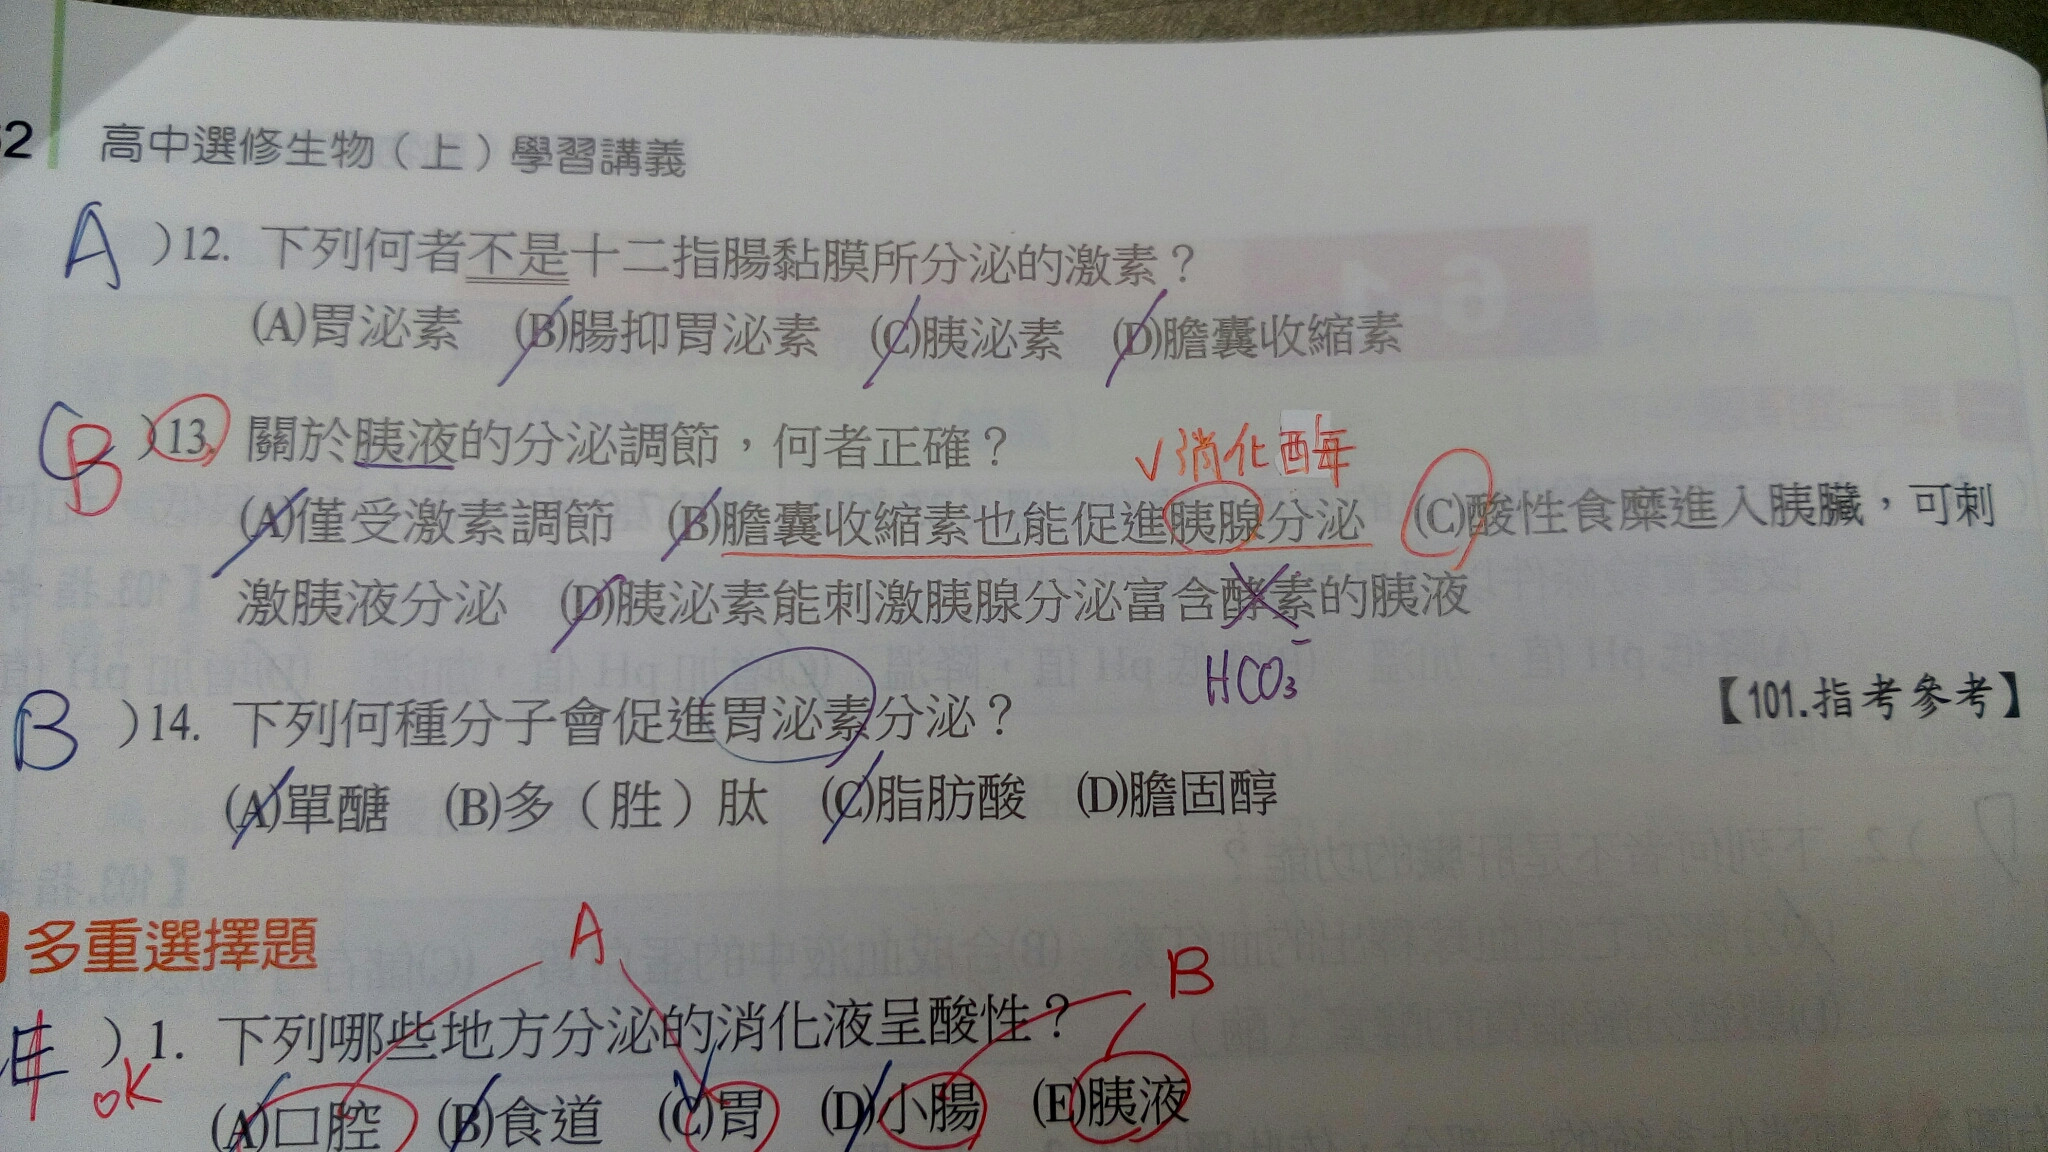 62 高中選修生物（上）學習講義
A )12. 下列何者不是十二指腸黏膜所分泌的激素？
(A)胃泌素 (B)腸抑胃泌素 (C)胰泌素 (D)膽囊收縮素
B )13. 關於胰液的分泌調節，何者正確？
✓消化酶
(A)僅受激素調節 (B)膽囊收縮素也能促進胰腺分泌 (C)酸性食糜進入胰臟，可刺
激胰液分泌 (D)胰泌素能刺激胰腺分泌富含酵素的胰液
HCO₃⁻
B )14. 下列何種分子會促進胃泌素分泌？ 【101.指考參考】
(A)單醣 (B)多（胜）肽 (C)脂肪酸 (D)膽固醇
多重選擇題
A
B
E )1. 下列哪些地方分泌的消化液呈酸性？
OK
(A)口腔 (B)食道 (C)胃 (D)小腸 (E)胰液